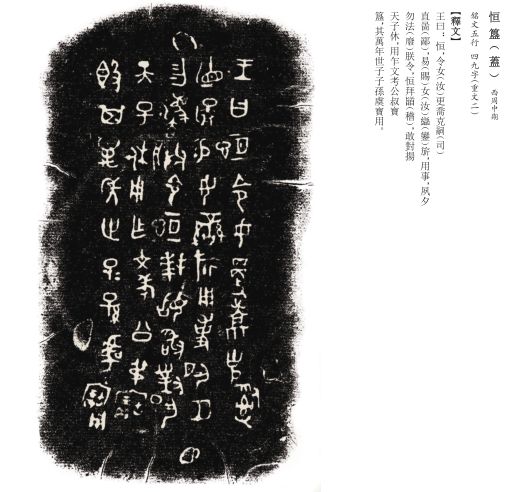 恒簋(蓋) 西周中期
銘文五行 四九字(重文二)
【釋文】
王曰:恒,令女(汝)更𤔲克嗣(司)
直啚(鄙),易(賜)女(汝)䜌(鑾)旂,用事,夙夕
勿法(廢)朕令,恒拜𩒨(稽),敢對揚
天子休,用乍文考公叔寶
簋,其萬年世子子孫虞寶用。